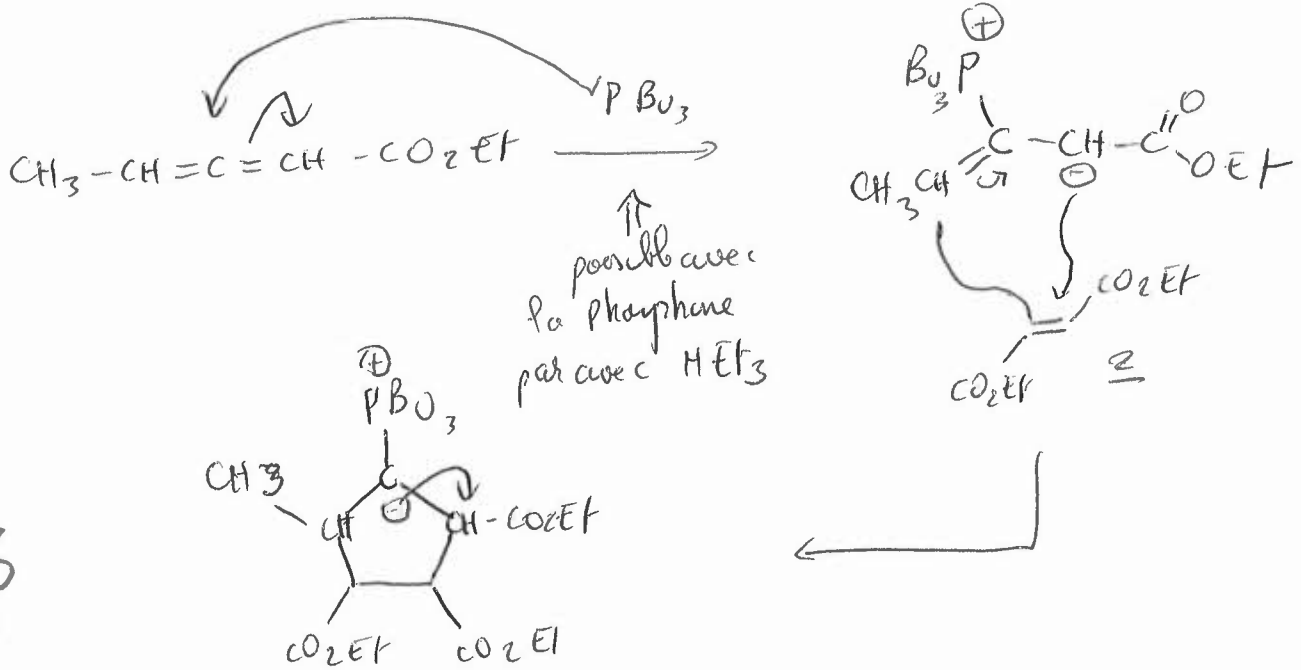 PBu3
CH3-CH=C=CH-CO2Et
possible avec
la phosphine
par avec NEt3
⊕
Bu3P
CH3CH=C-CH-C=O
⊖
OEt
CO2Et
CO2Et
2
⊕
PBu3
CH3
C
⊖
CH
CH-CO2Et
CO2Et
CO2Et